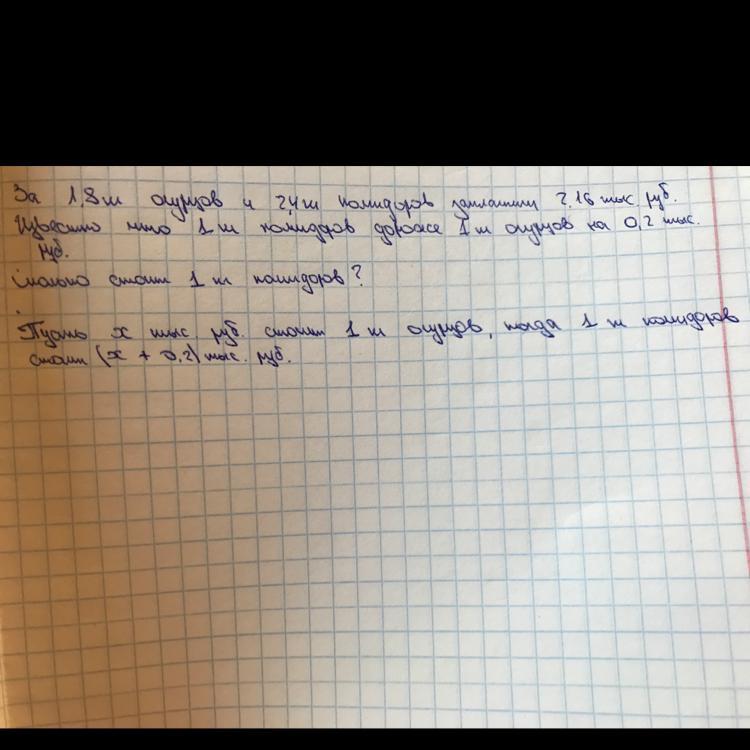 За 1,8 т огурцов и 2,4 т помидоров заплатили 2,16 тыс руб.
Известно что 1 т помидоров дороже 1 т огурцов на 0,2 тыс.
руб.
Сколько стоит 1 т помидоров?
Пусть x тыс руб. стоит 1 т огурцов, тогда 1 т помидоров
стоит (x + 0,2) тыс. руб.